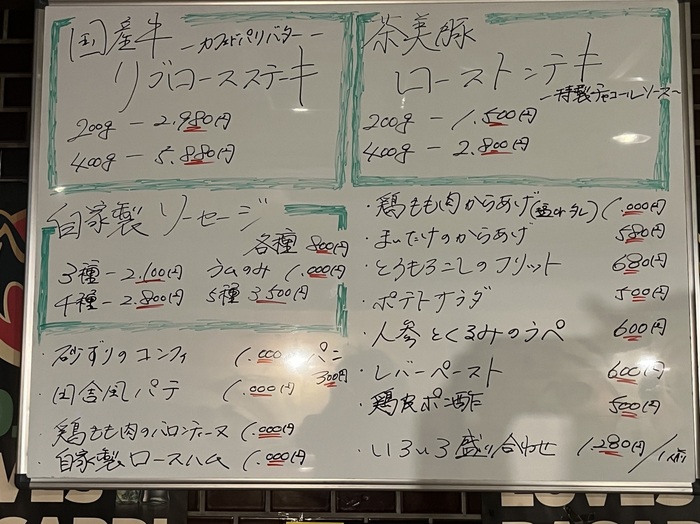 国産牛 ーカフェドパリバターー
リブロースステーキ
200g ー 2.980円
400g ー 5.880円
茶美豚
ローストンテキ
〜特製チャコールソース〜
200g ー 1.500円
400g ー 2.800円
自家製 ソーセージ
各種 800円
3種 ー 2.100円 ラムのみ 1.000円
4種 ー 2.800円 5種 3.500円
・砂ずりのコンフィ 1.000円
パン 300円
・田舎風パテ 1.000円
・鶏もも肉のバロンティーヌ 1.000円
・自家製ロースハム 1.000円
・鶏もも肉からあげ(塩orタレ) 1.000円
・まいたけのからあげ 580円
・とうもろこしのフリット 680円
・ポテトサラダ 500円
・人参とくるみのラペ 600円
・レバーペースト 600円
・鶏皮ポン酢 500円
・いろいろ盛り合わせ 1.280円/1人前